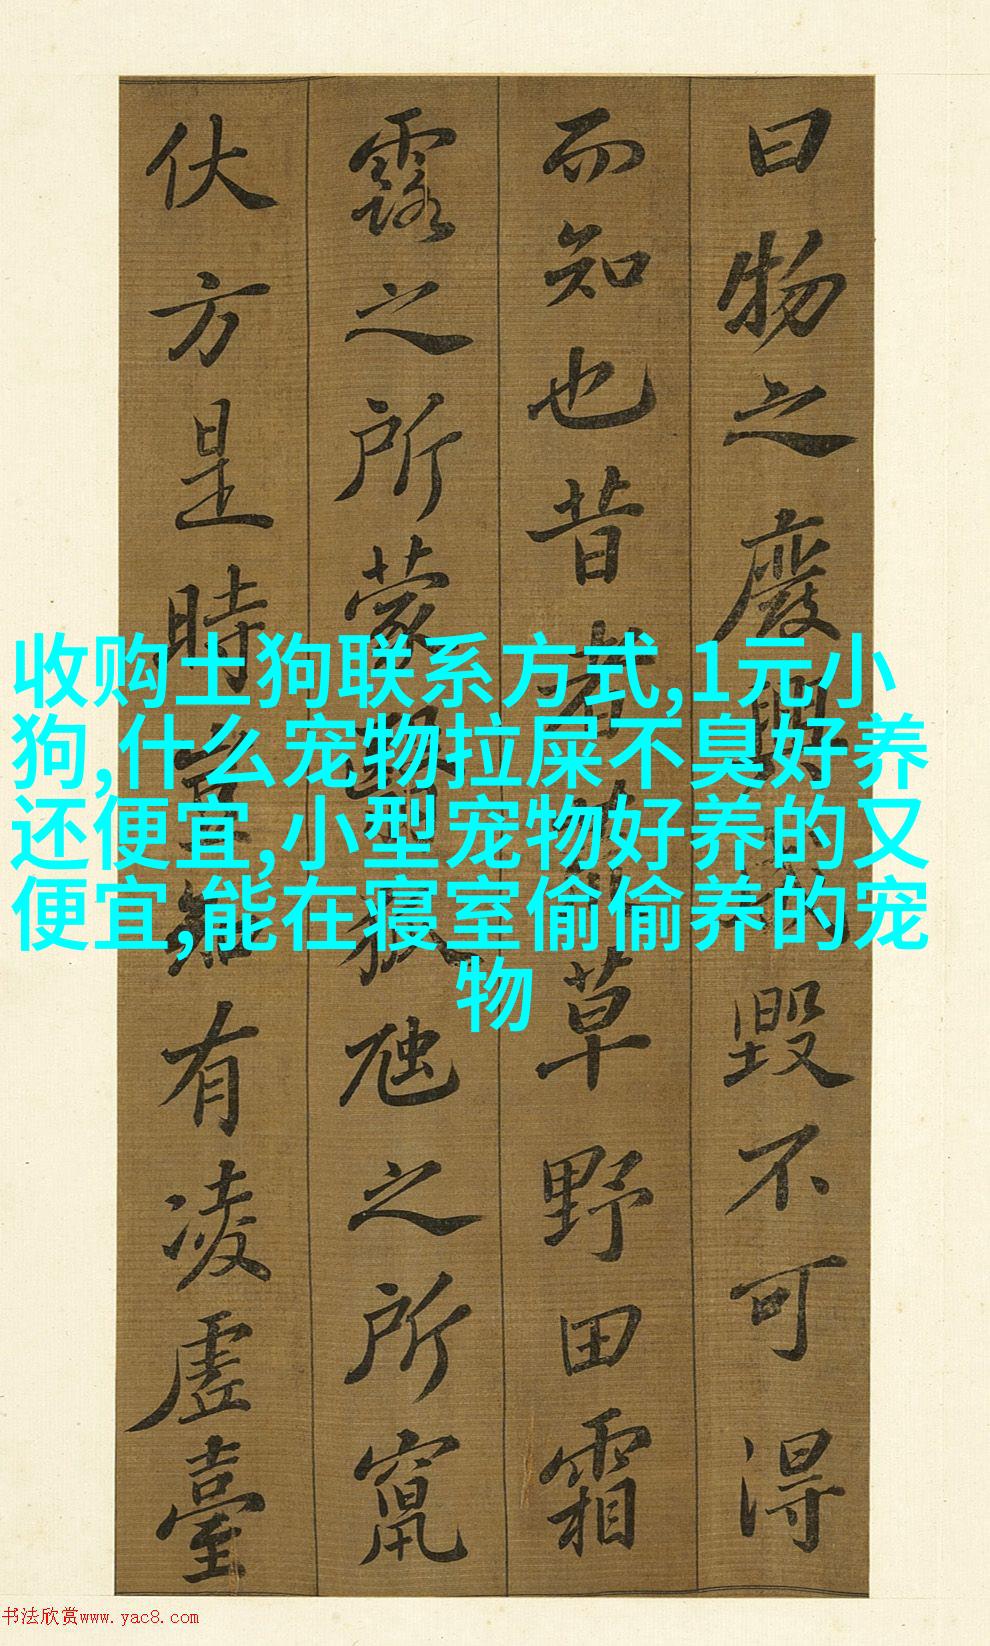 曰物之廢興毀不可得
而知也昔者荒草野田霜
露之所蒙翳狐虺之所竄
伏方是時豈知有凌虛臺
收购土狗联系方式,1元小
狗,什么宠物拉屎不臭好养
还便宜,小型宠物好养的又
便宜,能在寝室偷偷养的宠
物
书法欣赏www.yac8.com